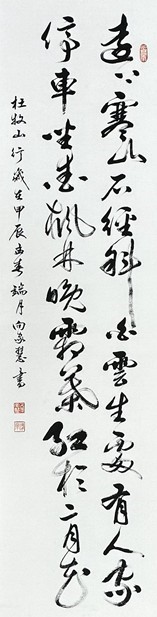 遠上寒山石徑斜白雲生處有人家
停車坐愛楓林晚霜葉紅於二月花
杜牧山行歲在甲辰春端月向慧書